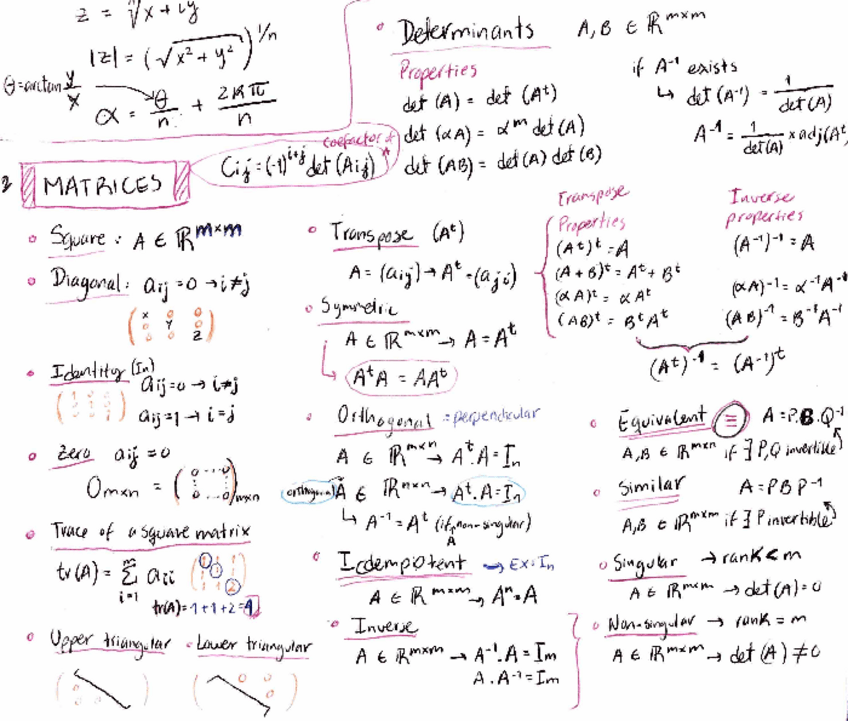 z = ⁿ√x + iy
|z| = (√x² + y²)^1/n
θ = arctan y/x
α = θ/n + 2Kπ/n
Determinants A, B ∈ ℝ^m×m
Properties
det (A) = det (A^t)
det (αA) = α^m det (A)
det (AB) = det (A) det (B)
if A^-1 exists
↳ det (A^-1) = 1/det (A)
A^-1 = 1/det(A) × adj(A^t
MATRICES
coefactor
Cij = (-1)^i+j det (Aij)
Square : A ∈ ℝ^m×m
Diagonal : aij = 0 → i ≠ j
x 0 0
0 y 0
0 0 z
Identity (In)
aij = 0 → i ≠ j
aij = 1 → i = j
Zero aij = 0
0m×n = (0 ... 0 0 ... 0)m×n
Trace of a square matrix
tr (A) = m Σ i=1 aii
tr(A) = 1 + 1 + 2 = 4
Upper triangular • Lower triangular
Transpose (A^t)
A = (aij) → A^t = (aji)
Symmetric
A ∈ ℝ^m×m → A = A^t
↳ A^t A = A A^t
Orthogonal = perpendicular
A ∈ ℝ^m×n → A^t . A = In
orthogonal A ∈ ℝ^n×n → A^t . A = In
↳ A^-1 = A^t (if A non-singular)
Icdempotent → Ex: In
A ∈ ℝ^m×m → A^n = A
Inverse
A ∈ ℝ^m×m → A^-1 . A = Im
A . A^-1 = Im
Transpose
Properties
(A^t)^t = A
(A + B)^t = A^t + B^t
(αA)^t = αA^t
(AB)^t = B^t A^t
Inverse
properties
(A^-1)^-1 = A
(αA)^-1 = α^-1 A^-1
(AB)^-1 = B^-1 A^-1
(A^t)^-1 = (A^-1)^t
Equivalent ≡ A = P.B.Q^-1
A, B ∈ ℝ^m×n if ∃ P, Q invertible
Similar A = P B P^-1
A, B ∈ ℝ^m×m if ∃ P invertible
Singular → rank < m
A ∈ ℝ^m×m → det (A) = 0
Non-singular → rank = m
A ∈ ℝ^m×m → det (A) ≠ 0